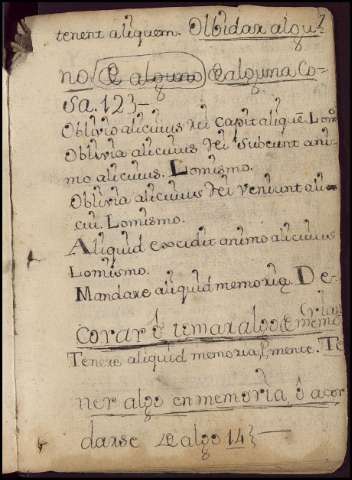 tenent aliquem. Olbidar algu-
no (De alguno) De alguna Co-
sa. 123—
Oblivio alicuius rei capit aliquē. Lom̄o
Oblivia alicuius rei subeunt ani-
mo alicuius. Lomismo.
Oblivia alicuius rei veniunt ali-
cui. Lomismo.
Aliquid excidit animo alicuius
Lomismo.
Mandare aliquid memoriæ. De-
corar ò tomar algo de memo
(ria
Tenere aliquid memoria, l, mente. Te
ner algo en memoria, ò acor
darse de algo 14